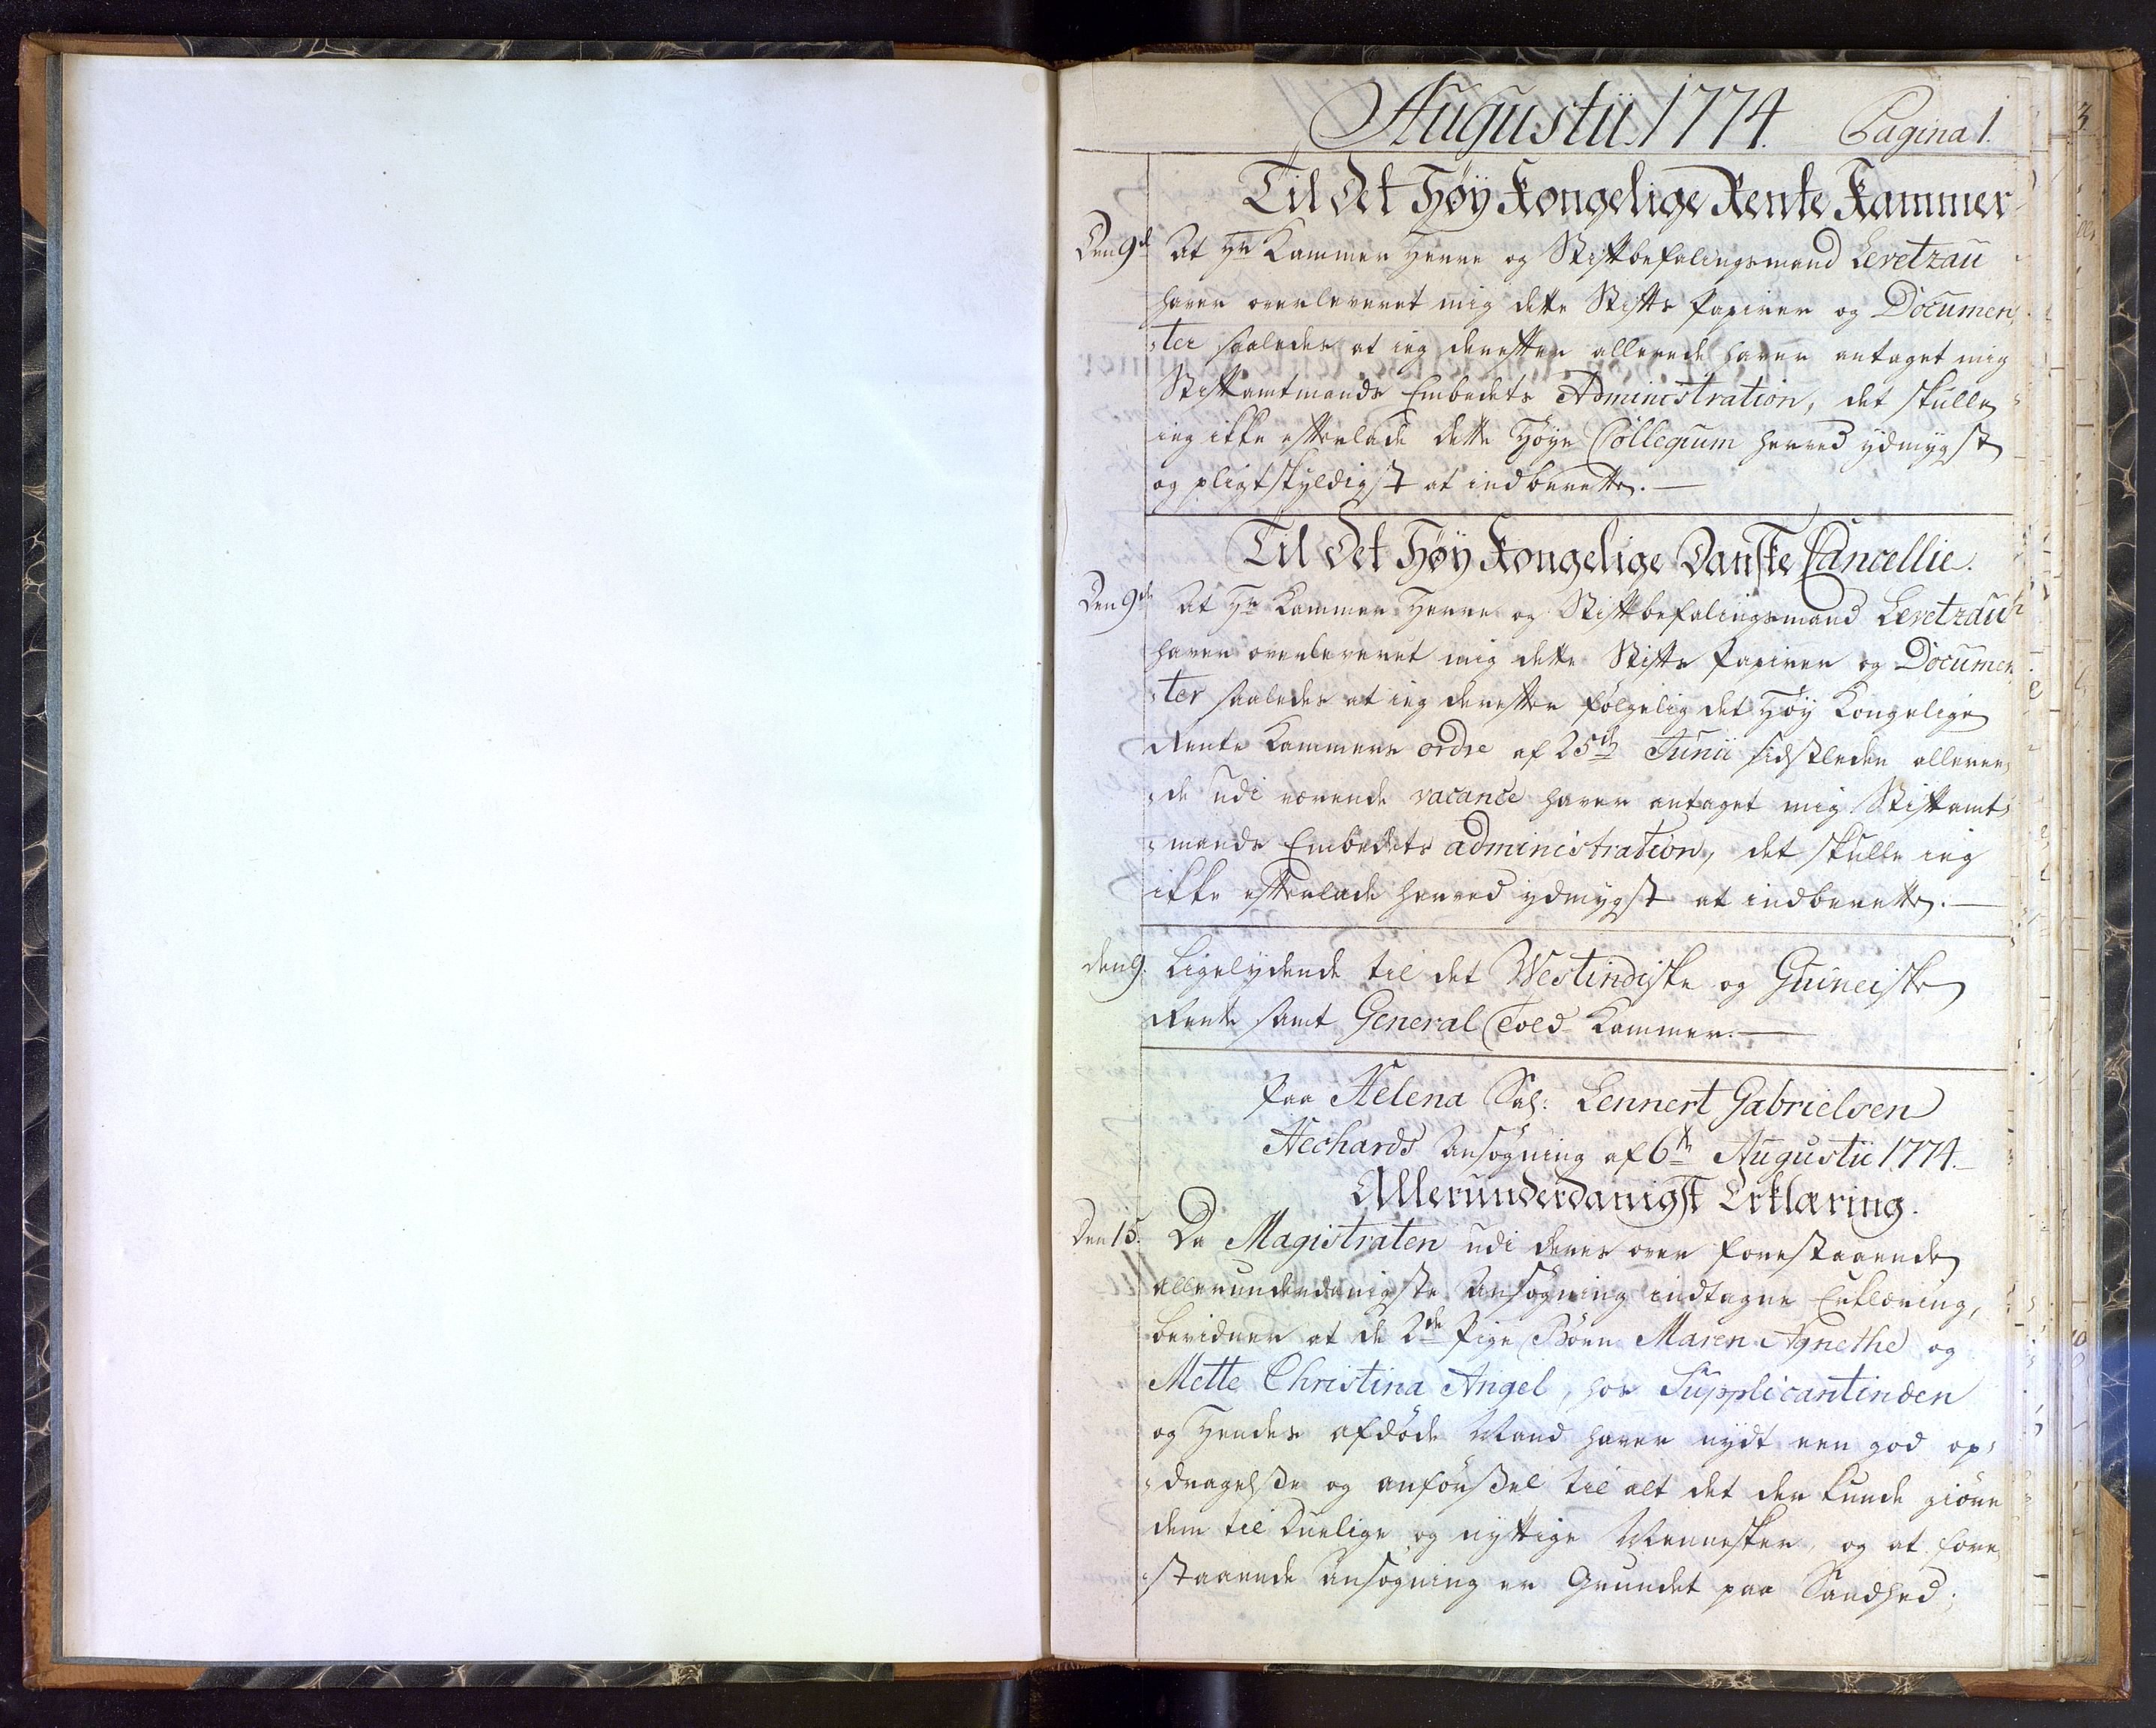 Augustii 1774. Pagina 1.
Til Det Høy Kongelige Rente Kammer
Den 9de At Hr Kammer Herre og Stiftbefalingsmand Levetzau
haver overleveret mig dette Stifts Papirer og Documen,
,ter saaledes at ieg derefter allerede haver antaget mig
Stiftamtmands Embedets Administration, det skulle
ieg ikke efterlade dette Høye Collegium herved ydmygst
og pligtskyldigst at indberette.—
Til Det Høy Kongelige Danske Cancellie.
Den 9de At Hr Kammer Herre og Stiftbefalingsmand Levetzau
haver overleveret mig dette Stifts Papirer og Documen
,ter saaledes at ieg derefter følgelig det Høy Kongelige
Rente Kammers ordre af 25de Junii sidstleden alleree,
,de udi værende vacance haver antaget mig Stiftamt,
,mands Embedets administration, det skulle ieg
ikke efterlade herved ydmygst at indberette.—
den 9. Ligelydende til det Westindiske og Guineiske
Rente samt General Told-Kammer.—
Paa Helena Sal: Lennert Gabrielsen
Hechards Ansøgning af 6te Augustii 1774.
Allerunderdanigst Erklæring.
Den 15. Da Magistraten udi deres over forestaaende
allerunderdanigste Ansøgning indtagne Erklæring,
bevidner at de 2de Pige Børn Maren Agnethe og
Mette Christina Angel, hos Supplicantinden
og Hendes afdøde Mand haver nydt een god op,
,dragelsse og anførssel til alt det der kunde giøre
dem til Duelige og nyttige Mennesker, og at fore,
,staaende Ansøgning er Grundet paa Sandhed;